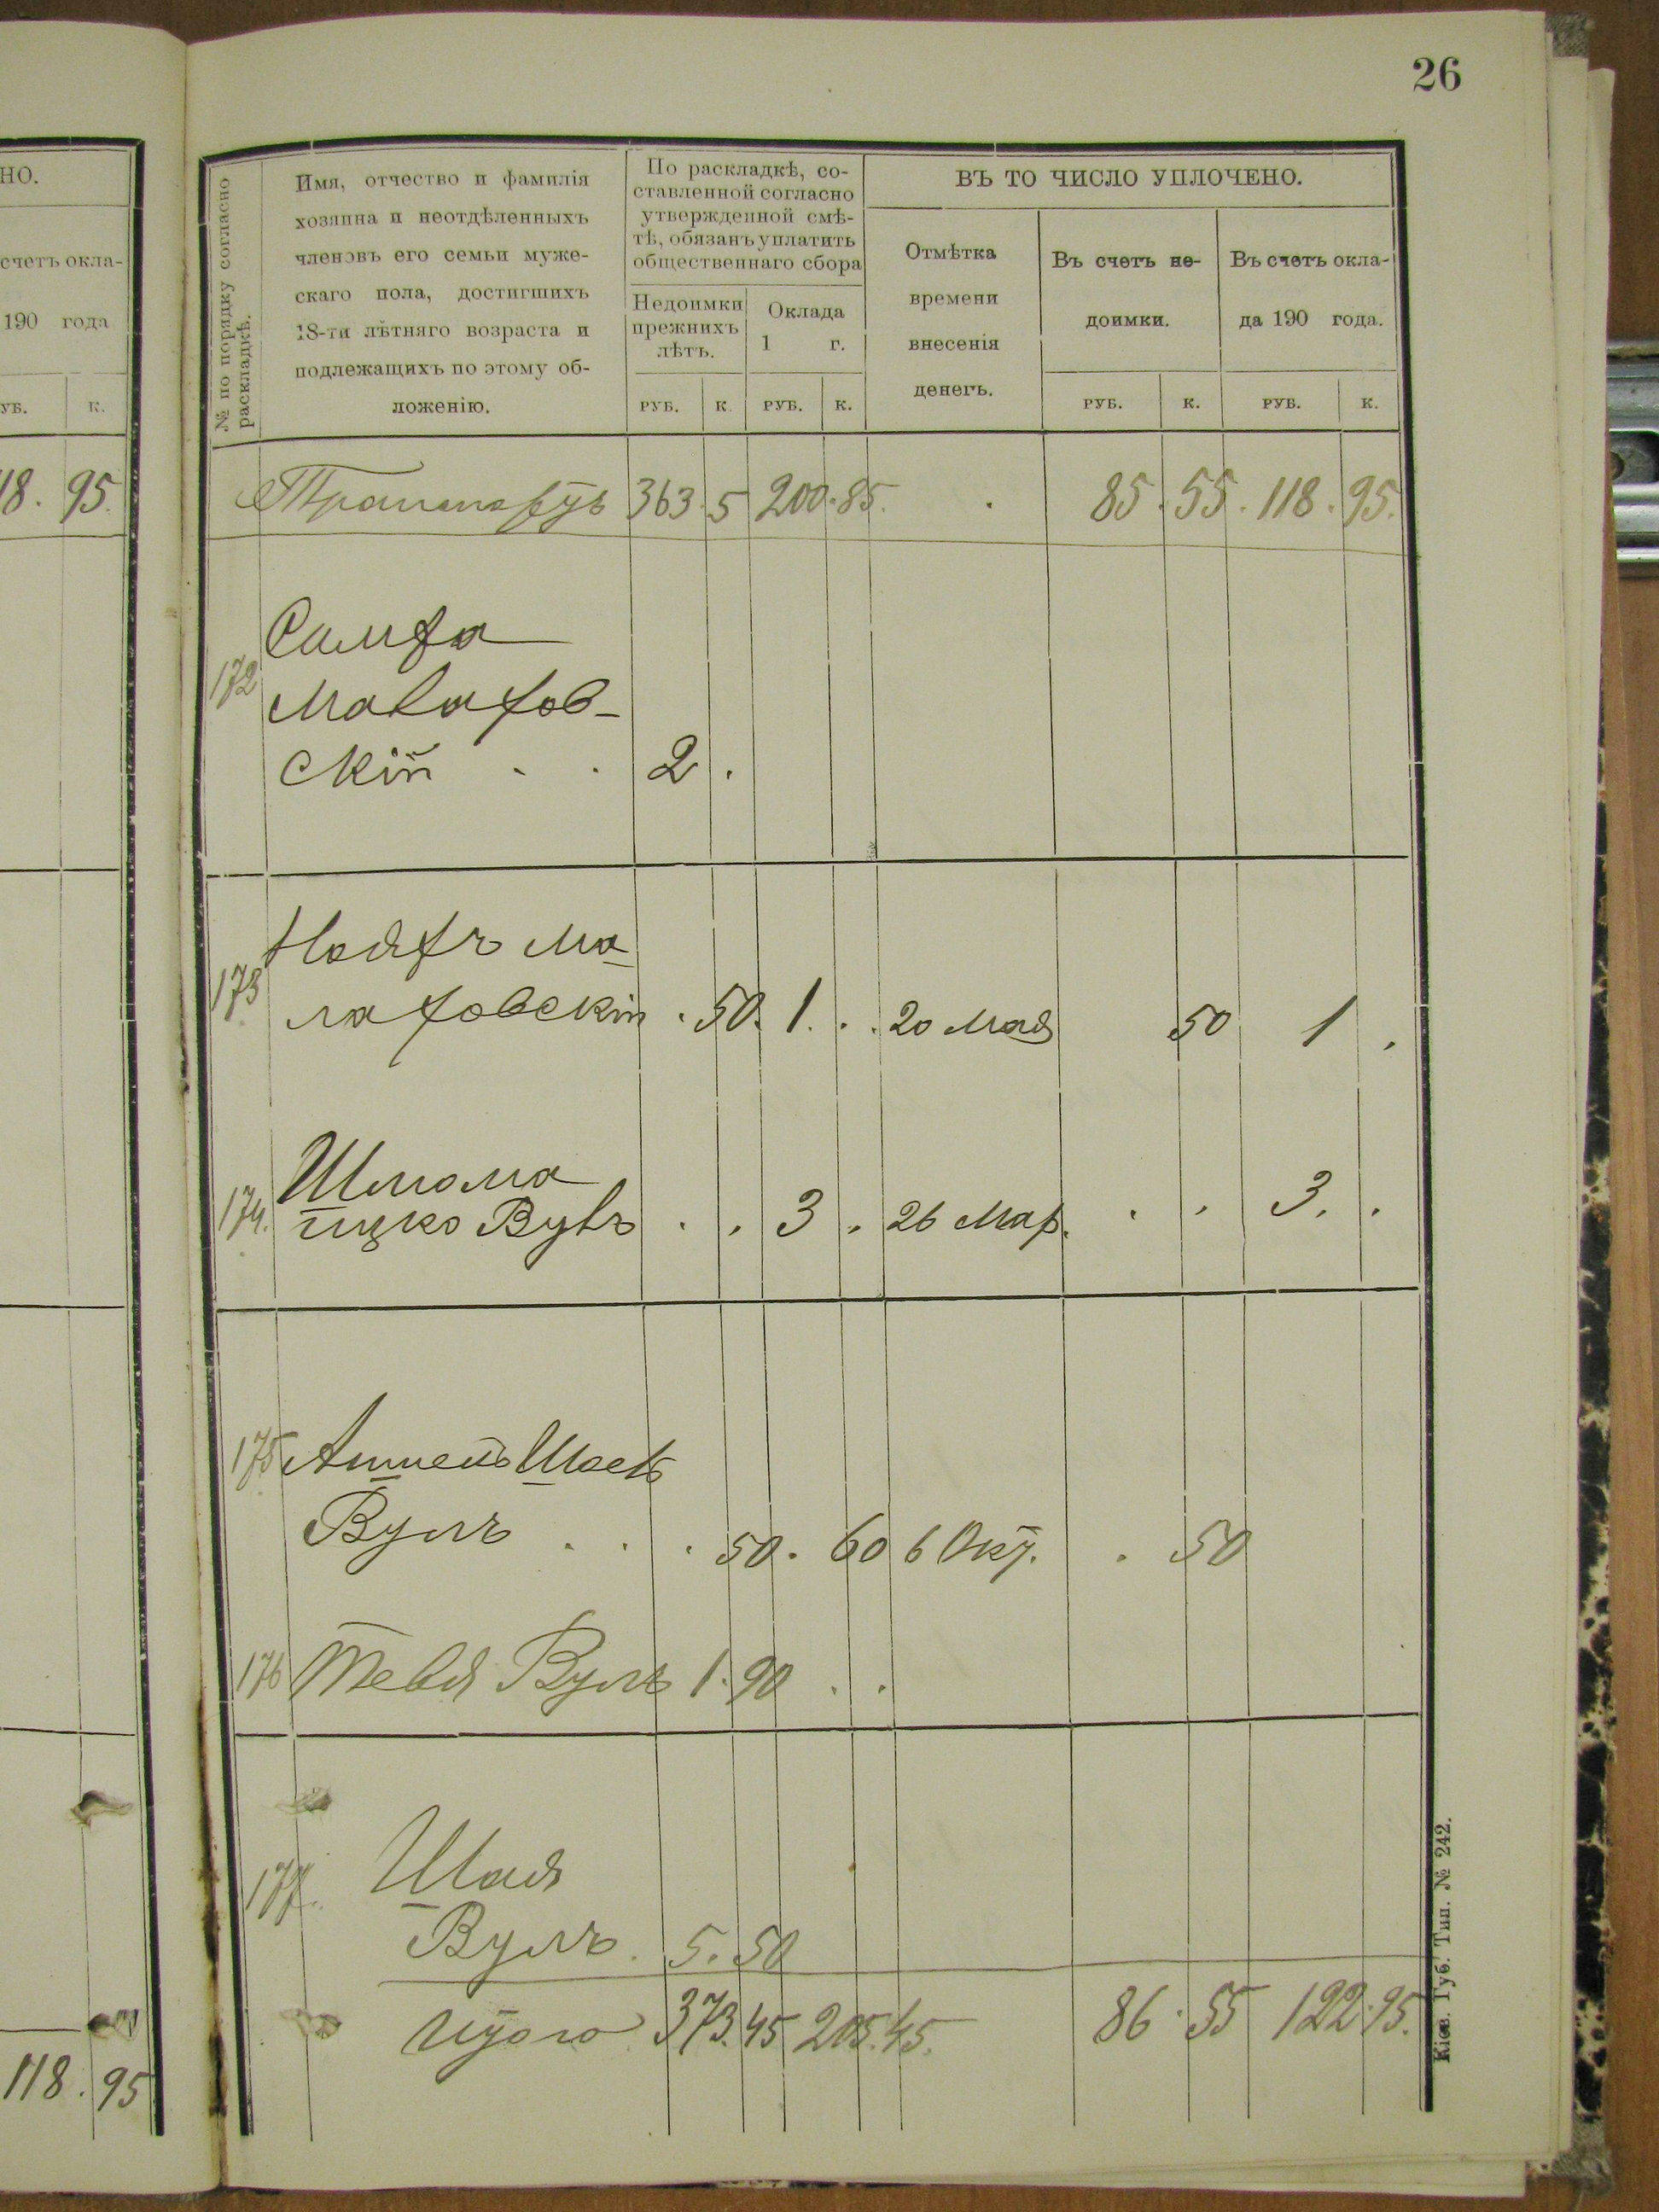 26
НО.
счетъ окла-
190 года
УБ. К.
18. 95.
118. 95
№ по порядку согласно
раскладкѣ.
Имя, отчество и фамилія
хозяина и неотдѣленныхъ
членовъ его семьи муже-
скаго пола, достигшихъ
18-ти лѣтняго возраста и
подлежащихъ по этому об-
ложенію.
По раскладкѣ, со-
ставленной согласно
утвержденной смѣ-
тѣ, обязанъ уплатить
общественнаго сбора
Недоимки
прежнихъ
лѣтъ.
Оклада
1 г.
РУБ. К. РУБ. К.
ВЪ ТО ЧИСЛО УПЛОЧЕНО.
Отмѣтка
времени
внесенія
денегъ.
Въ счетъ не-
доимки.
Въ счетъ окла-
да 190 года.
РУБ. К. РУБ. К.
Транспортъ 363. 5 200. 85. 85. 55. 118. 95.
172
Малахов-
скій . . 2 .
173 Ма
лаховскій . 50. 1. . . 20 Мая 50 1 .
Шлома
174. Ицко Вулъ . . 3 . 26 Мар. . . 3. .
175
Вулъ . . . 50. 60 6 Окт. . 50
176 Тевя Вулъ 1. 90 . .
177. Шая
Вулъ. 5. 50
Итого 373. 45 205. 45. 86. 55 122. 95.
Кіев. Губ. Тип. № 242.